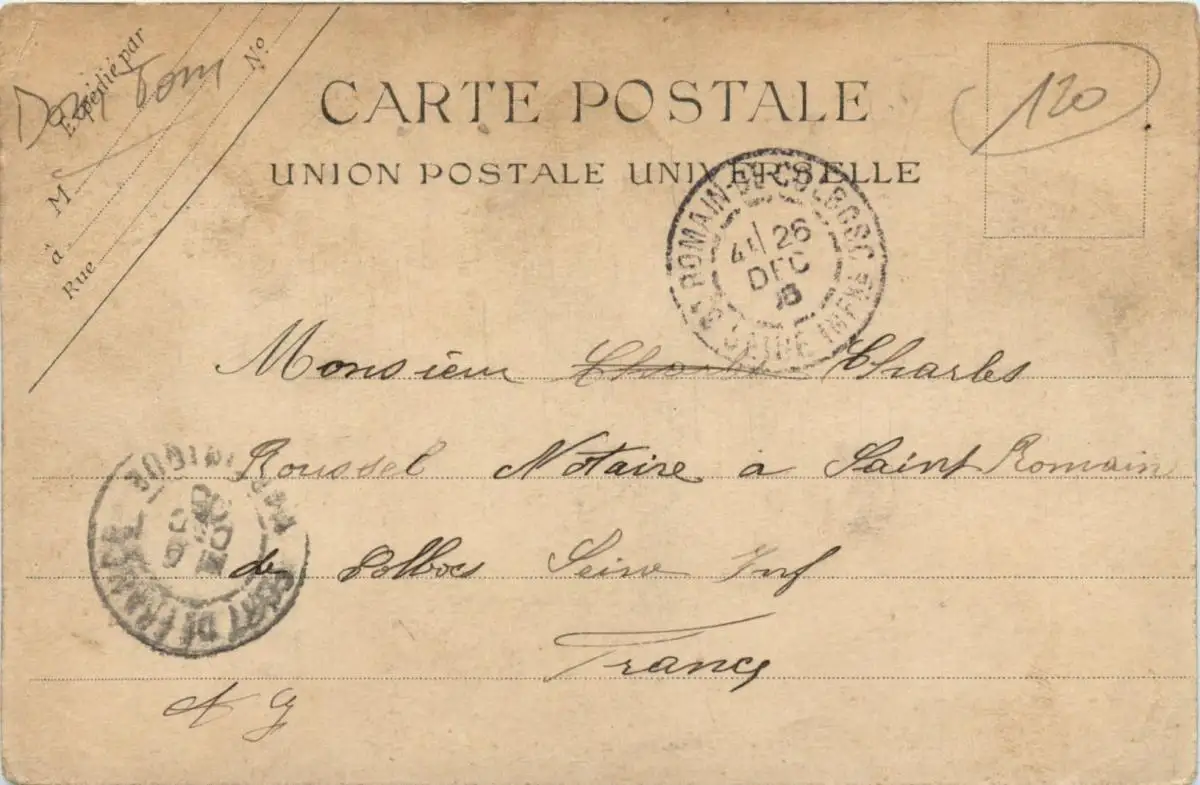 Expédié par
Dom Tom
M
à
Rue Nº
CARTE POSTALE
UNION POSTALE UNIVERSELLE
120
St ROMAIN-DE-COLBOSC
26
DEC
SEINE INFRE
Monsieur Charles
Roussel Notaire a Saint Romain
de Colbocs Seine Inf
France
MARTINIQUE
FORT DE FRANCE